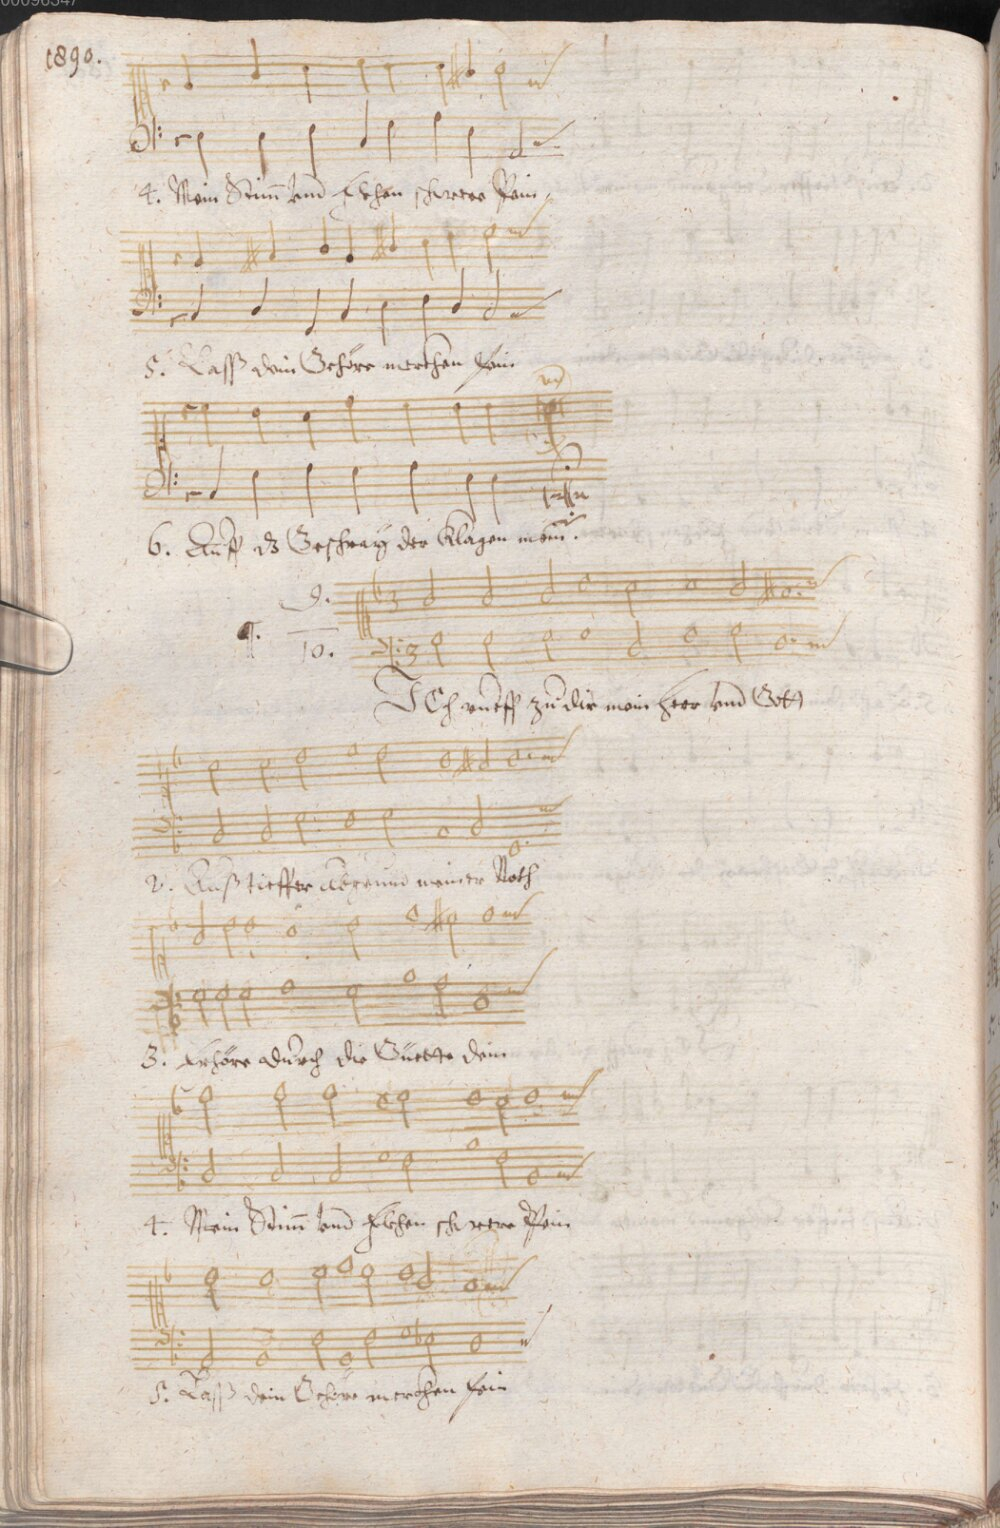 00096347
1890.
4. Mein Stim̄ vnd flehen schwere Pein
5. Lass dein Gehöre merckhen fein
6. Auff dz Geschray der Klagen mein.
9.
¶. 10.
3
3
ICh rueff zu dir mein Herr vnd Gott
2. Auß tieffer abgrund meiner Noth
3. Erhöre durch die Güette dein
4. Mein Stim̄ vnd flehen schwere Pein
5. Lass dein Gehöre merckhen fein